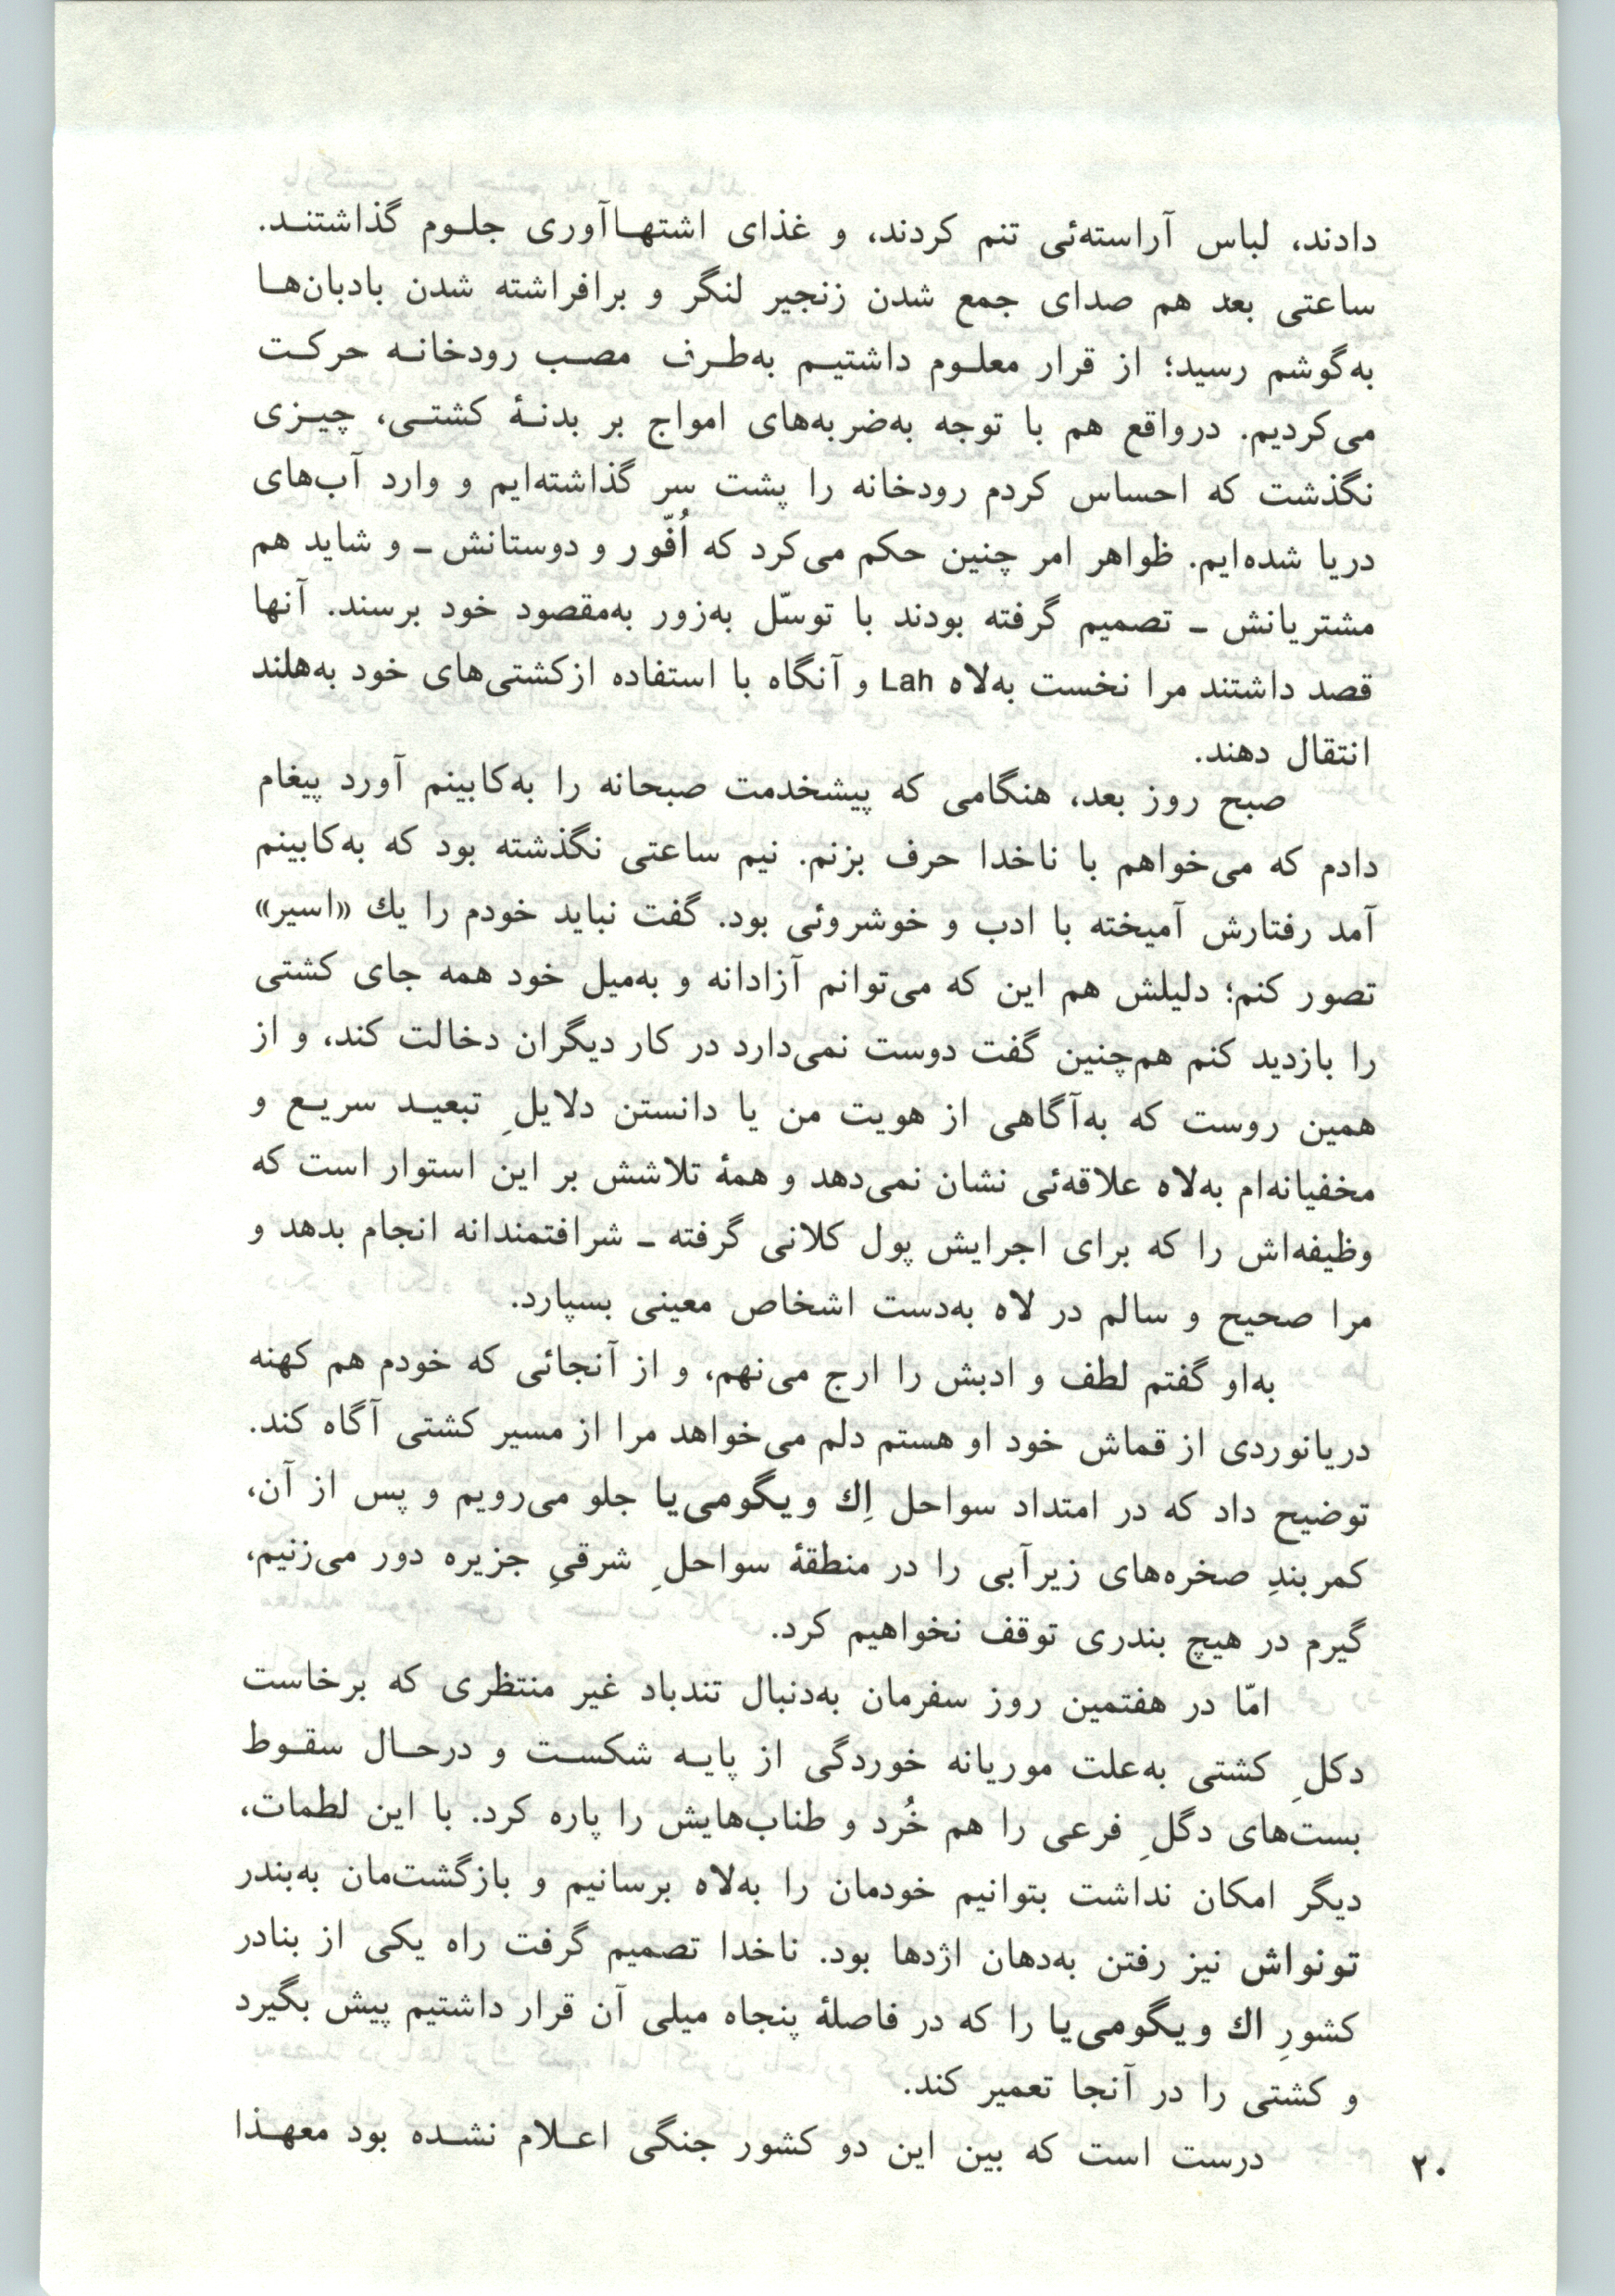 دادند، لباس آراسته‌ئی تنم کردند، و غذای اشتهاآوری جلوم گذاشتند.
ساعتی بعد هم صدای جمع شدن زنجیر لنگر و برافراشته شدن بادبان‌ها
به‌گوشم رسید؛ از قرار معلوم داشتیم به‌طرف مصب رودخانه حرکت
می‌کردیم. درواقع هم با توجه به‌ضربه‌های امواج بر بدنهٔ کشتی، چیزی
نگذشت که احساس کردم رودخانه را پشت سر گذاشته‌ایم و وارد آب‌های
دریا شده‌ایم. ظواهر امر چنین حکم می‌کرد که اُفّور و دوستانش ـ و شاید هم
مشتریانش ـ تصمیم گرفته بودند با توسّل به‌زور به‌مقصود خود برسند. آنها
قصد داشتند مرا نخست به‌لاه Lah و آنگاه با استفاده ازکشتی‌های خود به‌هلند
انتقال دهند.
صبح روز بعد، هنگامی که پیشخدمت صبحانه را به‌کابینم آورد پیغام
دادم که می‌خواهم با ناخدا حرف بزنم. نیم ساعتی نگذشته بود که به‌کابینم
آمد رفتارش آمیخته با ادب و خوشروئی بود. گفت نباید خودم را یك «اسیر»
تصور کنم؛ دلیلش هم این که می‌توانم آزادانه و به‌میل خود همه جای کشتی
را بازدید کنم هم‌چنین گفت دوست نمی‌دارد در کار دیگران دخالت کند، و از
همین روست که به‌آگاهی از هویت من یا دانستن دلایلِ تبعید سریع و
مخفیانه‌ام به‌لاه علاقه‌ئی نشان نمی‌دهد و همهٔ تلاشش بر این استوار است که
وظیفه‌اش را که برای اجرایش پول کلانی گرفته ـ شرافتمندانه انجام بدهد و
مرا صحیح و سالم در لاه به‌دست اشخاص معینی بسپارد.
به‌او گفتم لطف و ادبش را ارج می‌نهم، و از آنجائی که خودم هم کهنه
دریانوردی از قماش خود او هستم دلم می‌خواهد مرا از مسیر کشتی آگاه کند.
توضیح داد که در امتداد سواحل اِك ویگومی‌یا جلو می‌رویم و پس از آن،
کمربندِ صخره‌های زیرآبی را در منطقهٔ سواحلِ شرقیِ جزیره دور می‌زنیم،
گیرم در هیچ بندری توقف نخواهیم کرد.
امّا در هفتمین روز سفرمان به‌دنبال تندباد غیر منتظری که برخاست
دکلِ کشتی به‌علت موریانه خوردگی از پایه شکست و درحال سقوط
بست‌های دگلِ فرعی را هم خُرد و طناب‌هایش را پاره کرد. با این لطمات،
دیگر امکان نداشت بتوانیم خودمان را به‌لاه برسانیم و بازگشت‌مان به‌بندر
تونواش نیز رفتن به‌دهان اژدها بود. ناخدا تصمیم گرفت راه یکی از بنادر
کشورِ اك ویگومی‌یا را که در فاصلهٔ پنجاه میلی آن قرار داشتیم پیش بگیرد
و کشتی را در آنجا تعمیر کند.
درست است که بین این دو کشور جنگی اعلام نشده بود معهذا
۲۰